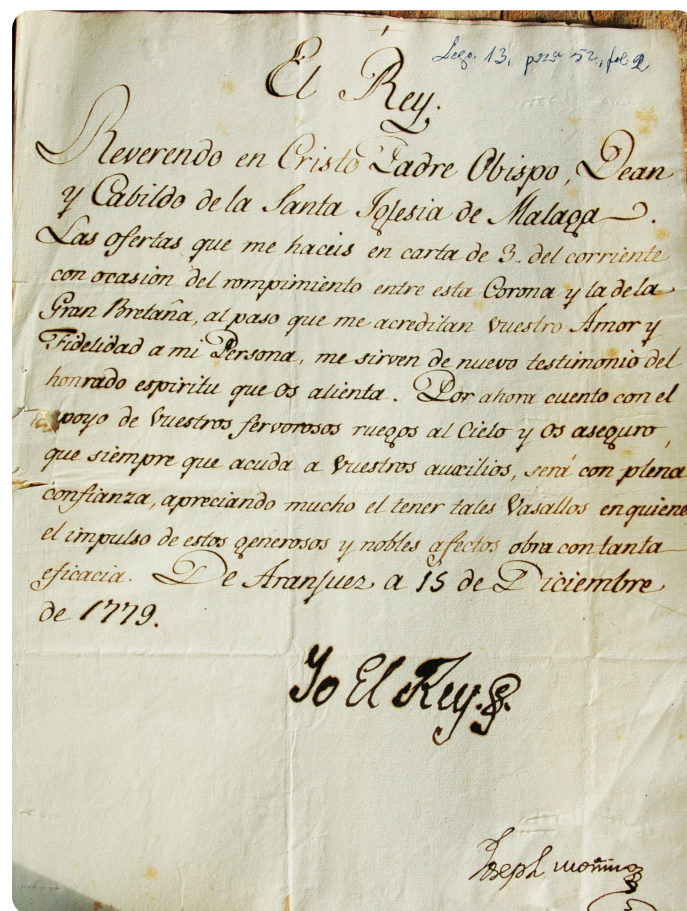 Lego. 13, pza 52, fol. 2
El Rey.
Reverendo en Cristo Padre Obispo, Dean
y Cabildo de la Santa Iglesia de Malaga.
Las ofertas que me haceis en carta de 3. del corriente
con ocasion del rompimiento entre esta Corona y la de la
Gran Bretaña, al paso que me acreditan vuestro Amor y
Fidelidad a mi Persona, me sirven de nuevo testimonio del
honrado espiritu que os alienta. Por ahora cuento con el
apoyo de vuestros fervorosos ruegos al Cielo y os aseguro,
que siempre que acuda a vuestros auxilios, será con plena
confianza, apreciando mucho el tener tales Vasallos en quiene
el impulso de estos generosos y nobles afectos obra con tanta
eficacia. De Aranjuez a 15 de Diciembre
de 1779.
Yo El Rey.
Joseph Moñino